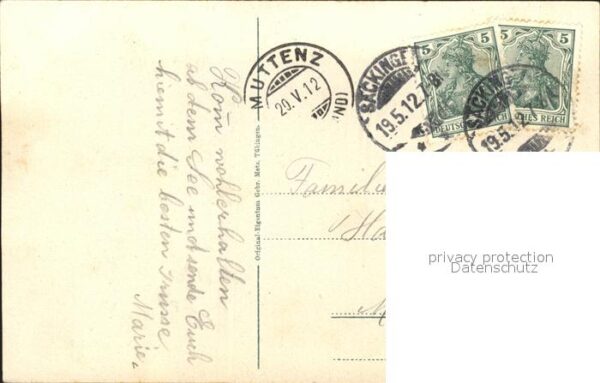 Kom wohlerhalten
ab dem See und sende Euch
hiemit die besten Grüsse
Marie.
Original-Eigentum Gebr. Metz, Tübingen.
MUTTENZ
20.V.12
SÄCKINGEN
19.5.12.
5 5
DEUTSCHES REICH
5 5
REICH
SÄCKINGEN
19.5.12
Familie
privacy protection
Datenschutz